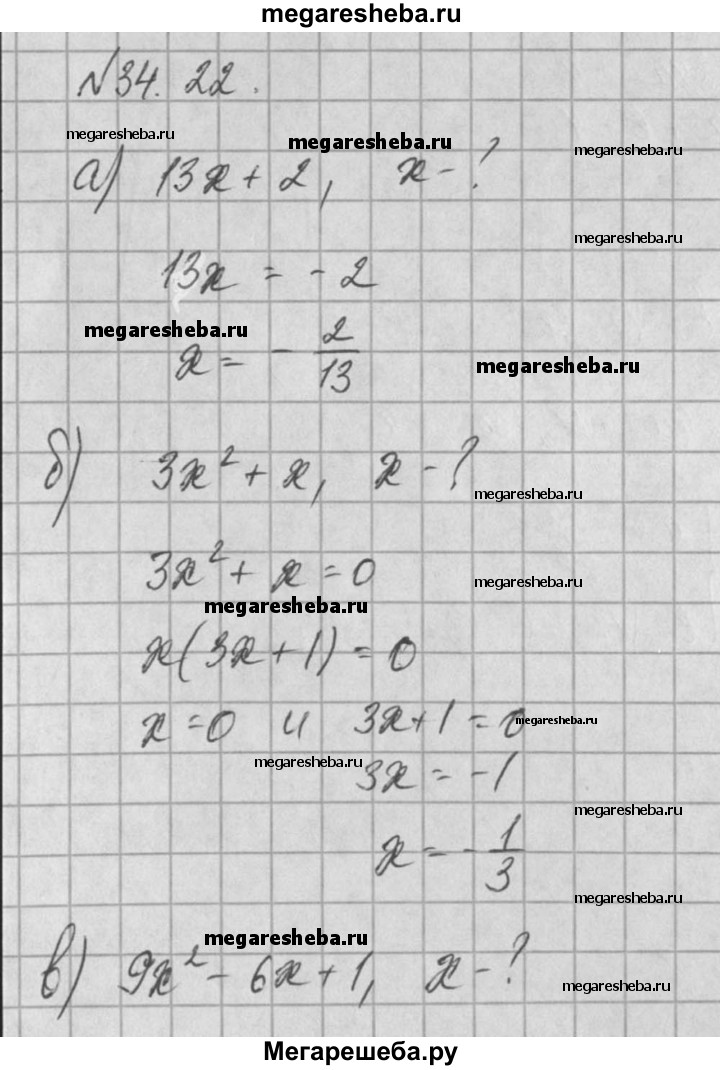 megaresheba.ru
№34.22.
megaresheba.ru megaresheba.ru megaresheba.ru
а) 13x + 2, x - ?
megaresheba.ru
13x = - 2
megaresheba.ru
x = - 2/13
megaresheba.ru
б) 3x² + x, x - ?
megaresheba.ru
3x² + x = 0
megaresheba.ru
megaresheba.ru
x(3x + 1) = 0
x = 0 и 3x + 1 = 0
megaresheba.ru
megaresheba.ru
3x = -1
megaresheba.ru
x = - 1/3
megaresheba.ru
megaresheba.ru
в) 9x² - 6x + 1, x - ?
megaresheba.ru
Мегарешеба.ру